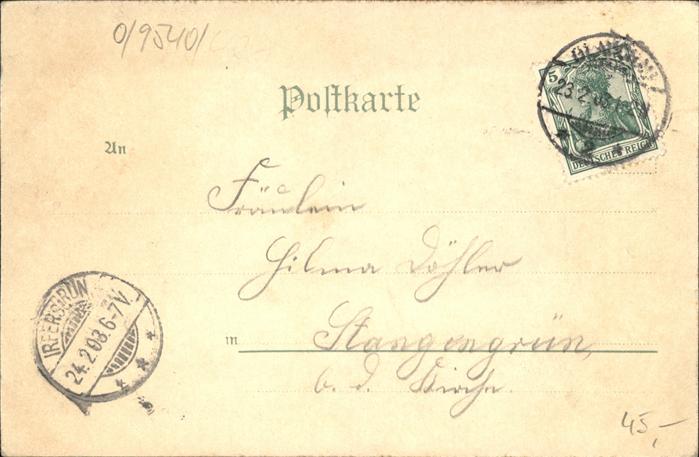 0/9540/
Postkarte
5
23.2.03
DEUTSCHES REICH
An
Fräulein
Hilma Döhler
in Stangengrün,
b. d. Kirche.
IRFERSGRÜN
24.2.03.6-7V.
45,-